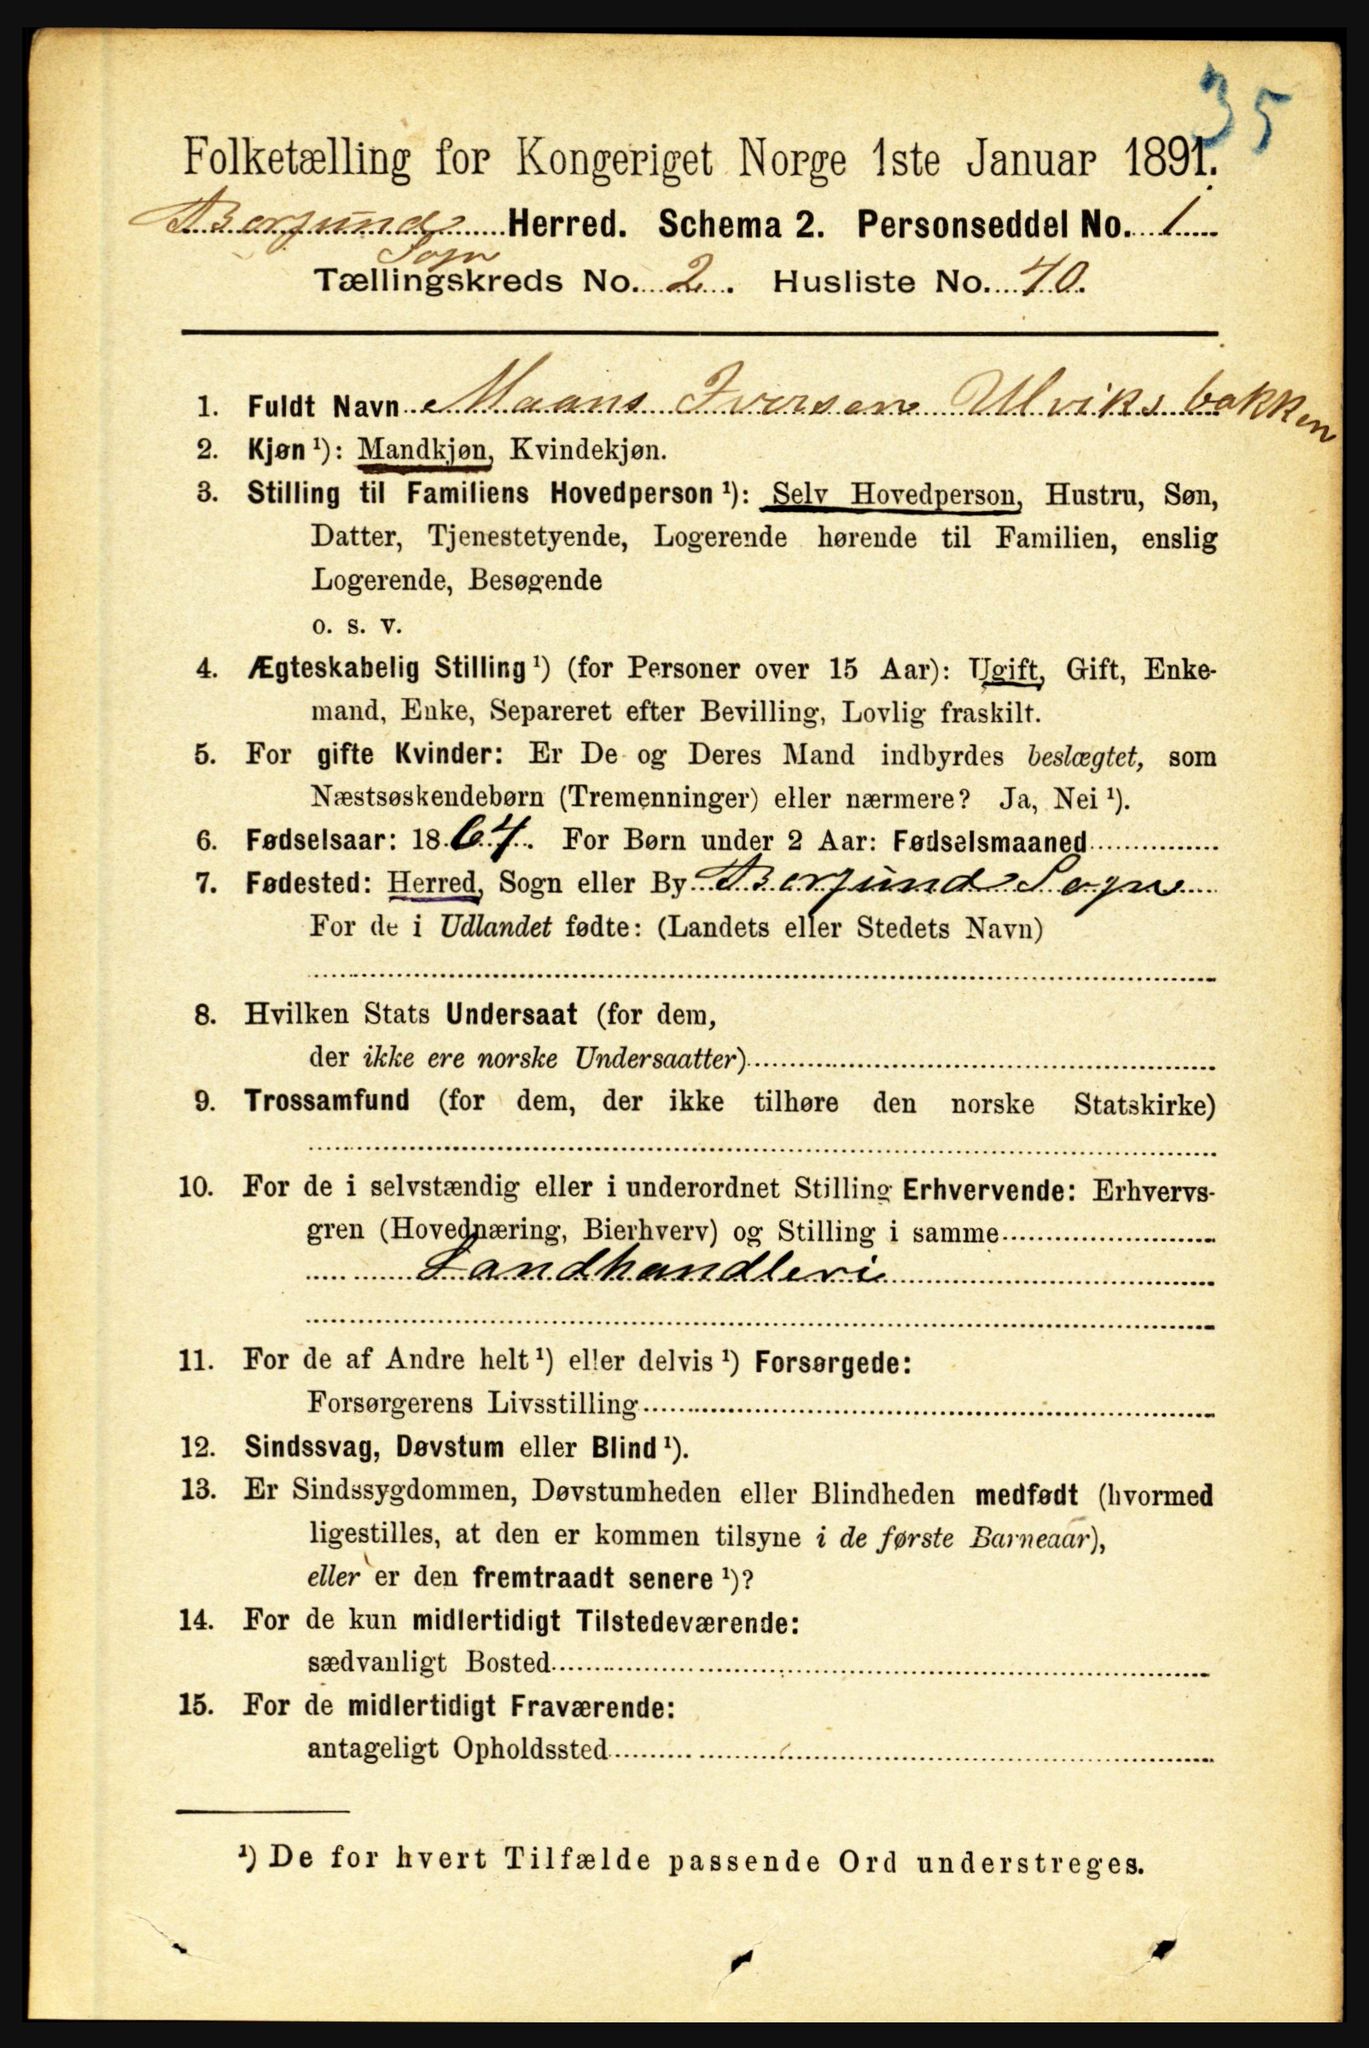 35
Folketælling for Kongeriget Norge 1ste Januar 1891.
Borgund Herred. Schema 2. Personseddel No. 1
Sogn
Tællingskreds No. 2. Husliste No. 40.
1. Fuldt Navn Maans Iversen Ulviksbakken
2. Kjøn ¹): Mandkjøn, Kvindekjøn.
3. Stilling til Familiens Hovedperson ¹): Selv Hovedperson, Hustru, Søn,
Datter, Tjenestetyende, Logerende hørende til Familien, enslig
Logerende, Besøgende
o. s. v.
4. Ægteskabelig Stilling ¹) (for Personer over 15 Aar): Ugift, Gift, Enke-
mand, Enke, Separeret efter Bevilling, Lovlig fraskilt.
5. For gifte Kvinder: Er De og Deres Mand indbyrdes beslægtet, som
Næstsøskendebørn (Tremenninger) eller nærmere? Ja, Nei ¹).
6. Fødselsaar: 1864. For Børn under 2 Aar: Fødselsmaaned
7. Fødested: Herred, Sogn eller By Borgund Sogn
For de i Udlandet fødte: (Landets eller Stedets Navn)
8. Hvilken Stats Undersaat (for dem,
der ikke ere norske Undersaatter)
9. Trossamfund (for dem, der ikke tilhøre den norske Statskirke)
10. For de i selvstændig eller i underordnet Stilling Erhvervende: Erhvervs-
gren (Hovednæring, Bierhverv) og Stilling i samme
Landhandleri
11. For de af Andre helt ¹) eller delvis ¹) Forsørgede:
Forsørgerens Livsstilling
12. Sindssvag, Døvstum eller Blind ¹).
13. Er Sindssygdommen, Døvstumheden eller Blindheden medfødt (hvormed
ligestilles, at den er kommen tilsyne i de første Barneaar),
eller er den fremtraadt senere ¹)?
14. For de kun midlertidigt Tilstedeværende:
sædvanligt Bosted
15. For de midlertidigt Fraværende:
antageligt Opholdssted
¹) De for hvert Tilfælde passende Ord understreges.